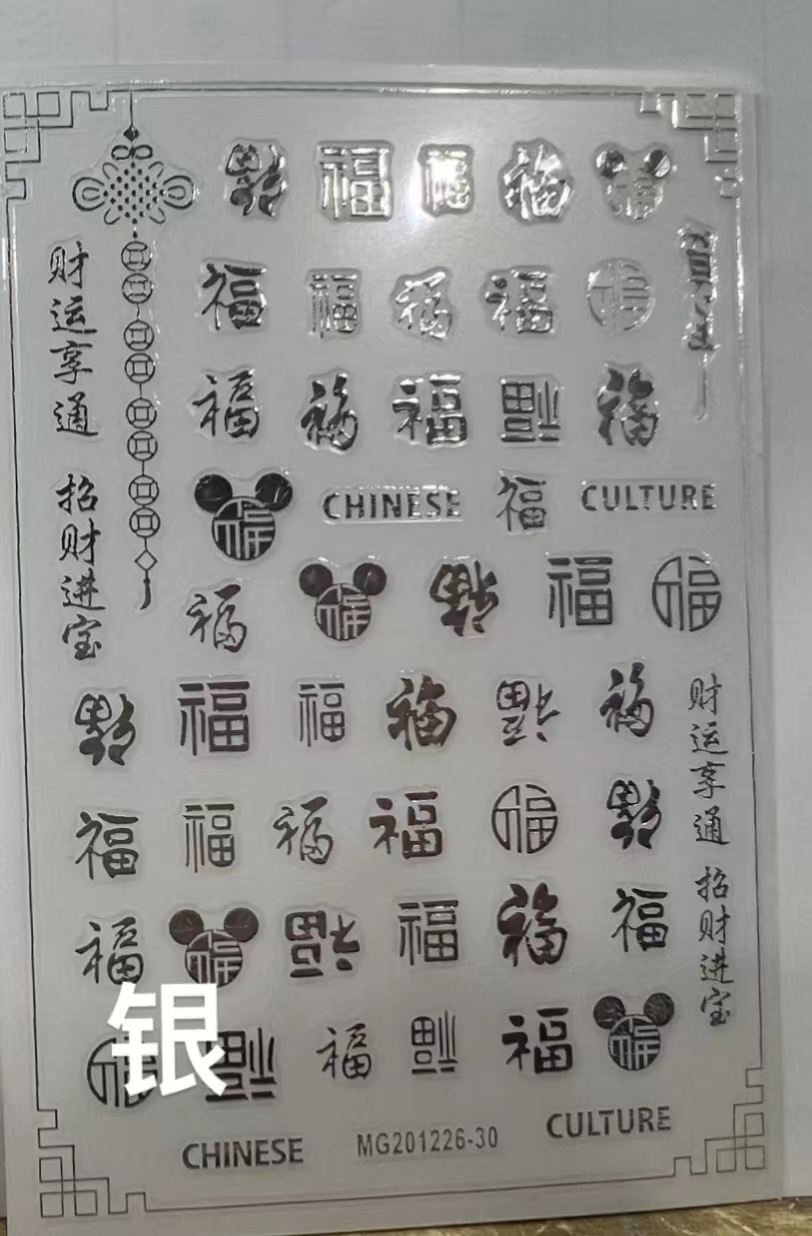 财运享通 招财进宝
福 福 福 福 福
福 福 福 福 福
福 福 福 福 福
福 CHINESE 福 CULTURE
福 福 福 福 福
福 福 福 福 福 福
福 福 福 福 福 福
福 福 福 福 福 福
福 福 福 福 福 福
财运享通 招财进宝
银
CHINESE MG201226-30 CULTURE